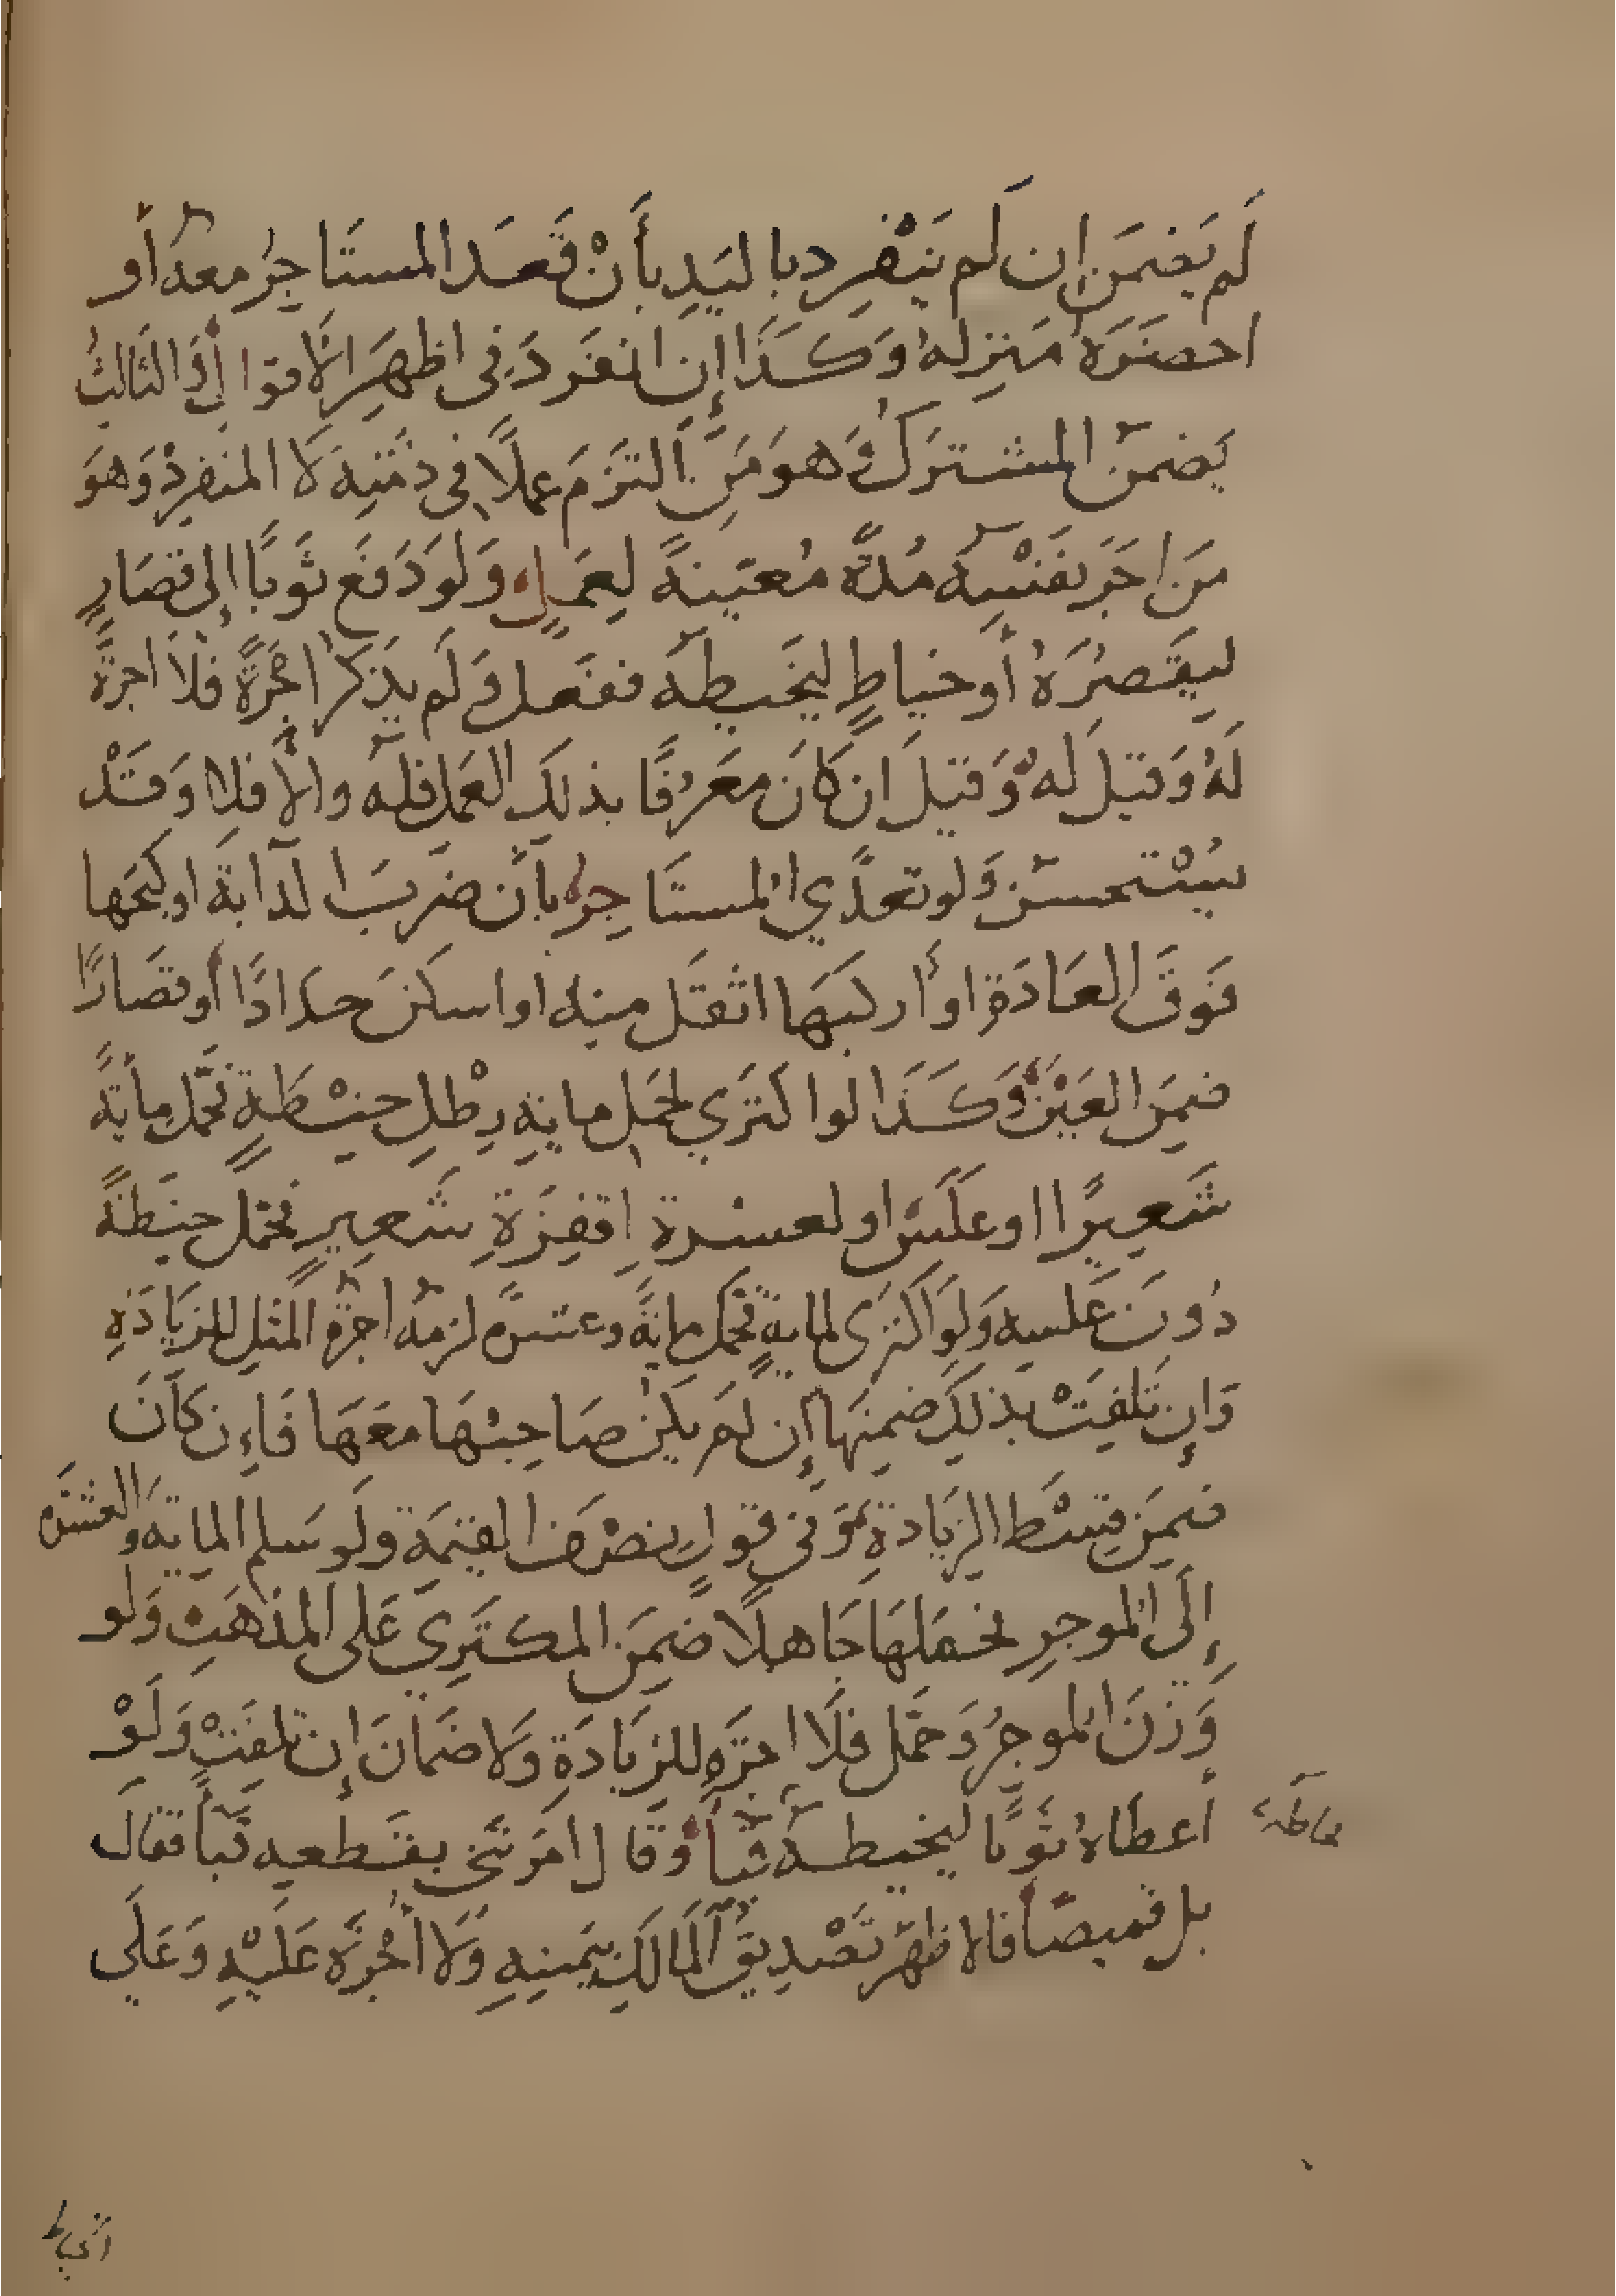 لَم يَضمَن إن لَم يَنْفرِد بِاليَدِ بأَنْ قَعَدَ المستَاجِرُ معهُ أو
احضَرَهُ مَنزِلهُ وَكَذَا إن انفَرَدَ في اظهَرِ الأقوالِ وَالثَالثُ
يَضمنُ المشترَكُ وَهوَ مَنِ التَزَمَ عملًا في ذمّتِهِ لَا المنفرِدْ وَهوَ
مَن اجَرَ نَفْسَه مُدةً مُعيّنةً لِعَمَلٍ وَلَو دَفَعَ ثَوبًا إلى قصَارٍ
لِيَقصُرَهُ أو خياطٍ ليَخيطَه ففَعَل وَلَم يذكر اجْرَةً فَلَا اجرَةَ
لَهُ وَقيلَ لَهُ وَقيلَ ان كَانَ معرُوفًا بذلِكَ العَمل فلهُ والاّ فلا وَقَدْ
يُسْتحسنُ وَلو تعدَّي المستَاجِرُ بأن ضَربَ الدآبةَ او كبَحَها
فَوقَ العَادَةِ او أركبَهَا اثقَلَ منهُ او اسكنَ حدَادًا أو قصَارًا
ضَمِنَ العَيْنَ وَكَذَا لو اكتَرَي لحَملِ مايةِ رِطْلِ حِنْطَةٍ فحَمل مِأيَةً
شَعِيرًا او عَكَسَ او لعشرة اقفِزَةِ شَعِيرٍ فحَمل حِنطَةً
دُونَ عَكسِه وَلَو اكترَى لمايةٍ فحَمل مايةً وعشرةً لزمهُ اجرَةُ المثلِ للزيَادَةِ
وَإن تَلفَتْ بذلكَ ضمِنهَا إن لَم يَكُن صَاحِبُهَا مَعَهَا فَإن كَانَ
ضَمِنَ قِسْطَ الزيَادةِ وَفي قولٍ نصْفَ القيمَةِ ولَو سَلم المايةَ وَالعشَرَةَ
إِلَى الموجِرِ فحَملَهَا جَاهلًا ضَمِنَ المكتَرِيَ عَلى المذهَبِ وَلَو
وَزنَ الموجِرُ وَحَمَل فَلَا اجرَةَ للزيَادَةِ وَلا ضَمَانَ إن تلفَتْ وَلَوْ
أعطَاهُ ثَوبًا ليخيطَه قبَأ وَقَال امَرتَني بقَطعِه قَبأً فقَالَ
بل قميصًا فالاظهَرُ تَصْدِيقُ المَالكِ بيَمينِهِ وَلَا أجْرَةَ عَلَيْهِ وَعَلَى